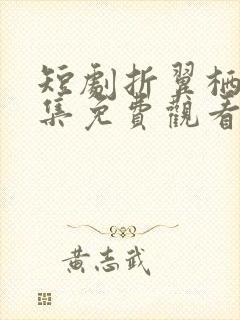 短劇折翼栖
集免費觀看
黃志武